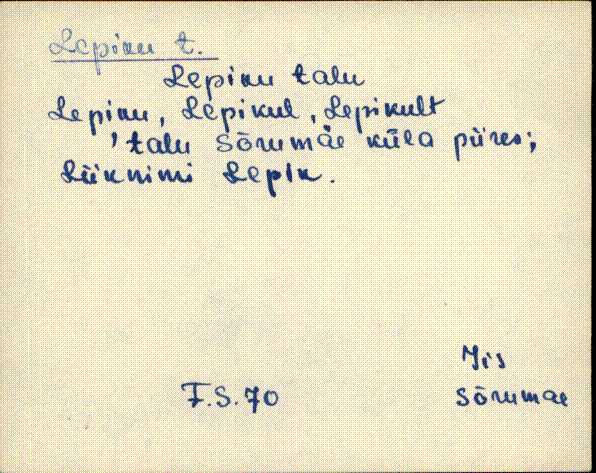 Lepiku t.
Lepiku talu
Lepiku, Lepikul, Lepikult
'talu Sõrumäe küla piires;
Liiknimi Lepik.
Jis
F.S.70 Sõrumäe